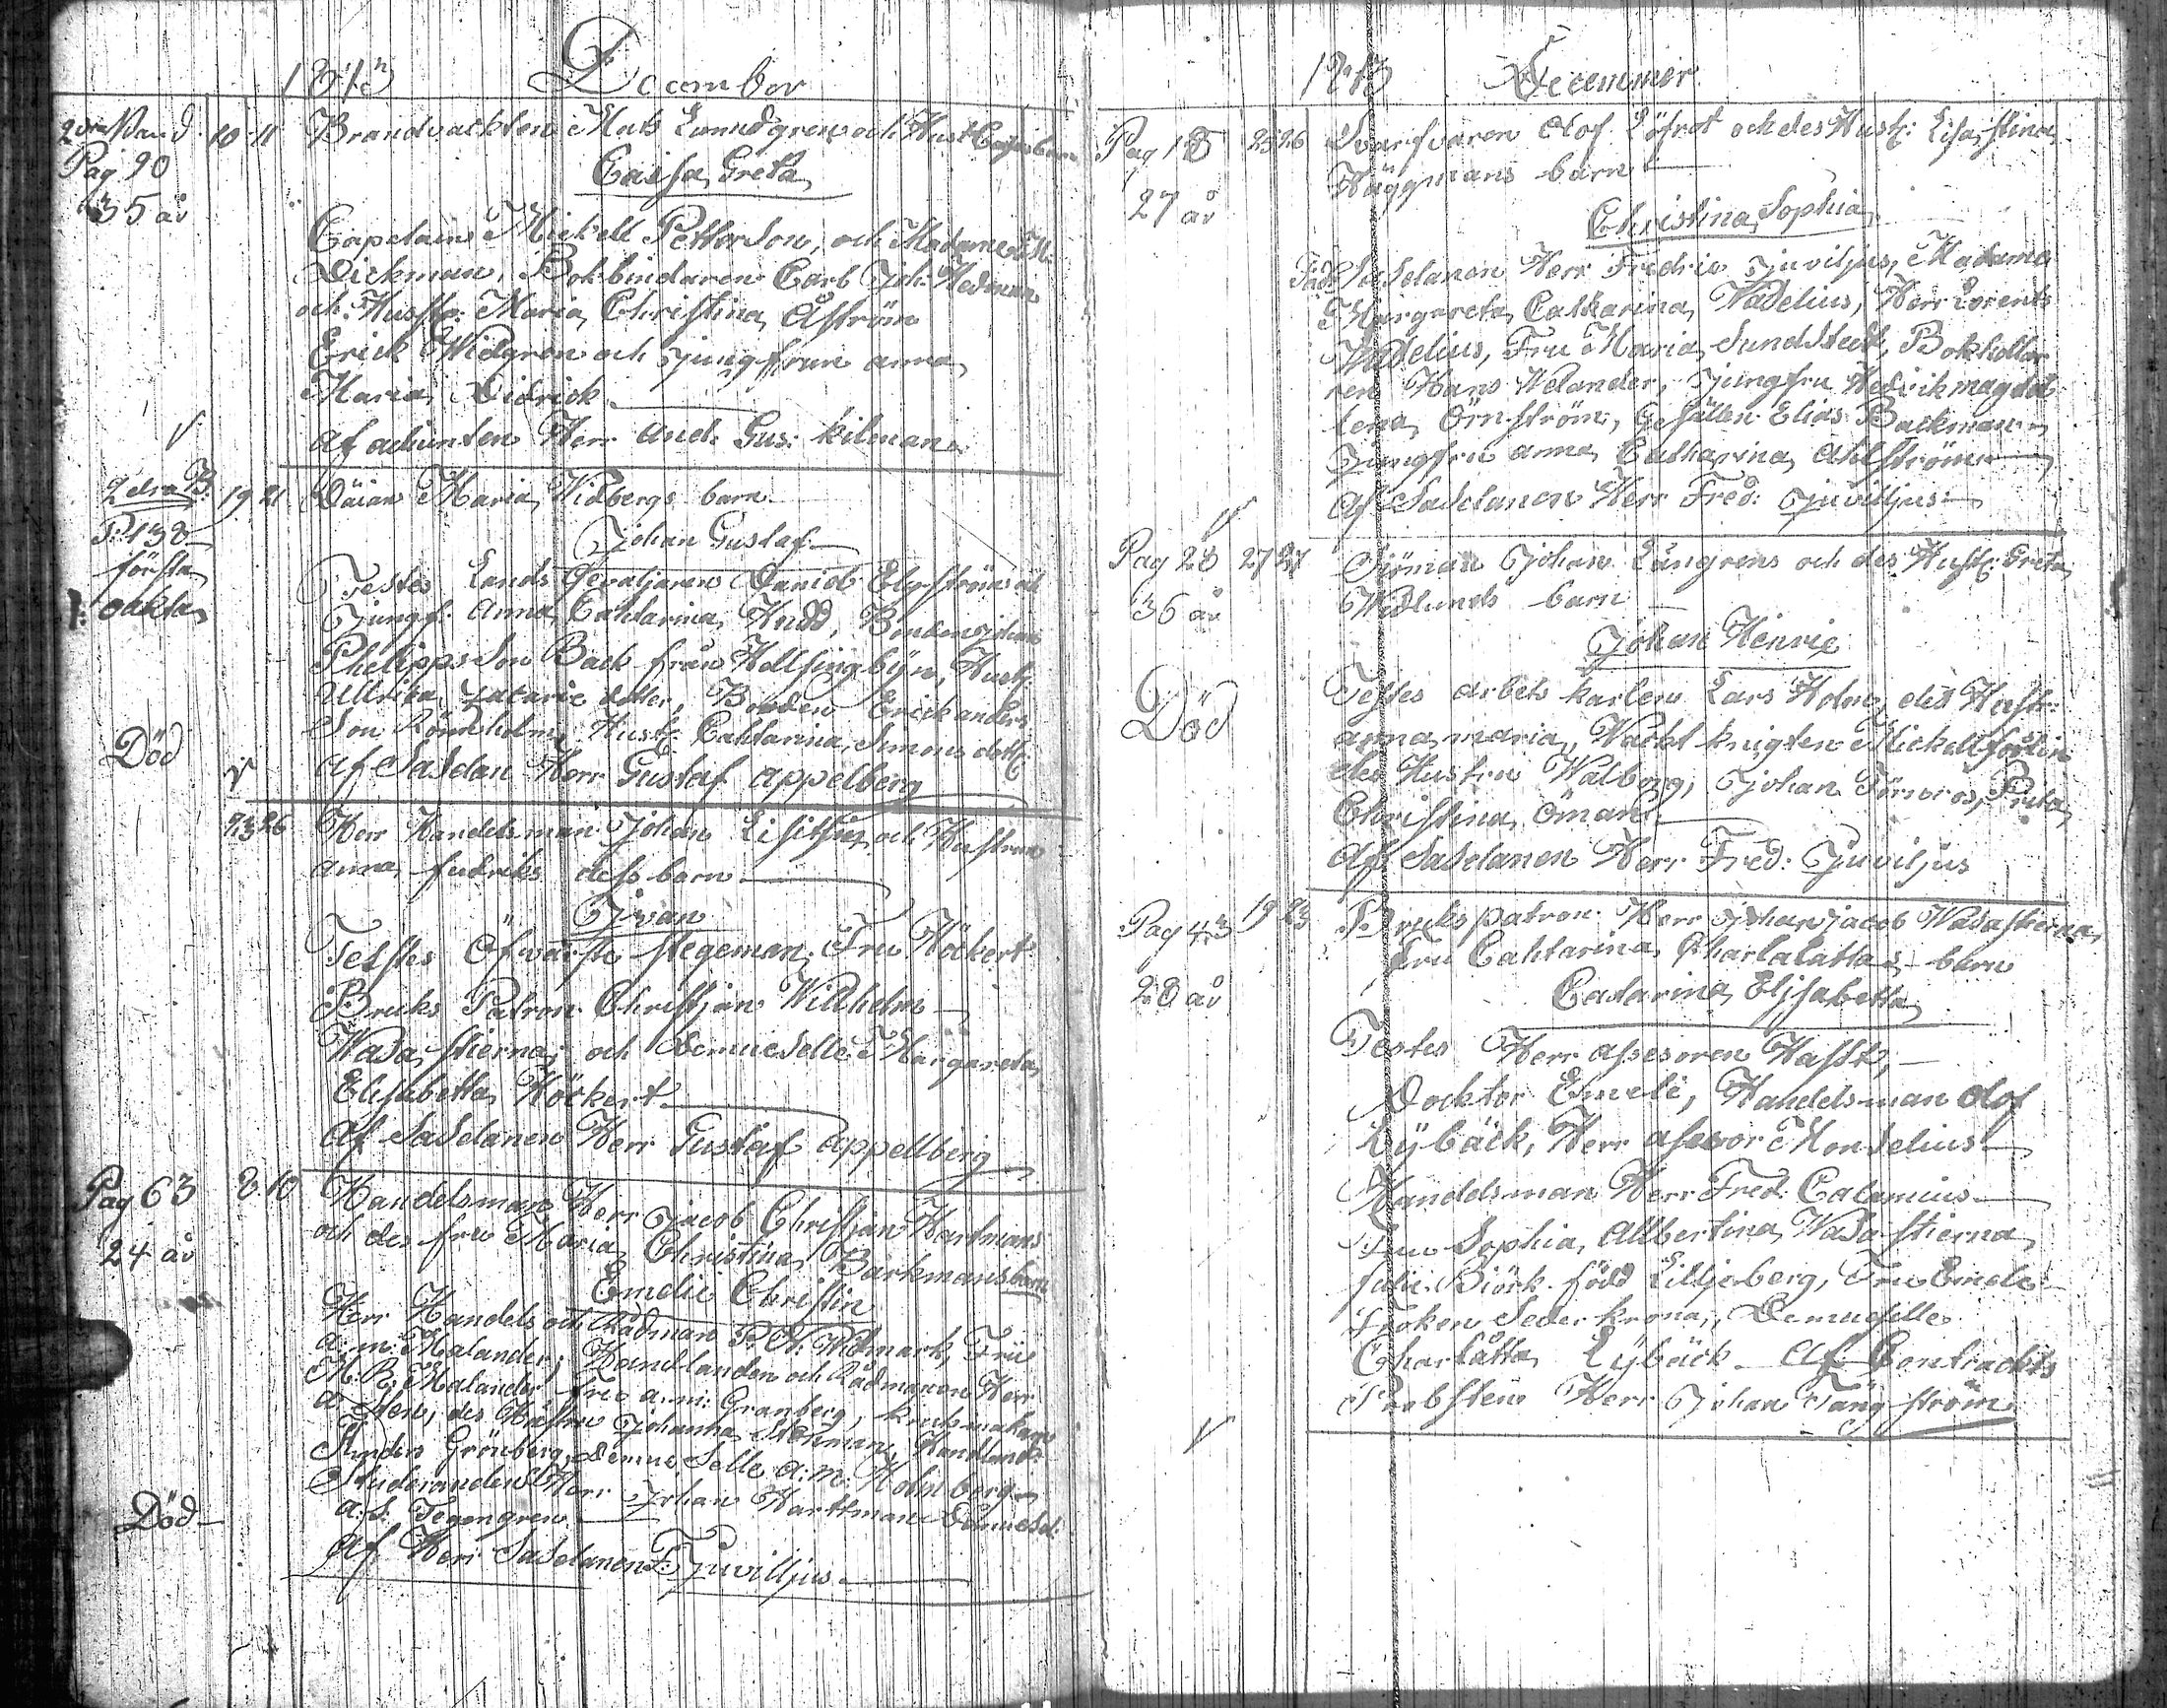 1813
December
2dra Band
Pag 90
35 år
10 11
Brandvackten Mats Lanndgren och Hust Cajsa barn
Caisa Greta
Capetains Mickell Petterson, och Madame
Dickman, Bokbindaren Carl Joh: Hedman
och Hustr: Maria Christina Åström
Erick Widgren och Jungfrun anna
Maria Didrick
af adiunten Herr And: Gus: Kilman
2dra B.
P. 138
första
oäkta
Död
19 21
Däian Maria Widbergs barn
Johan Gustaf
Testes Lands Gevaljaren Daniel Elgström och
Jungf: Anna Cahtarina Hudd, Bonden Johan
Phelippsson Back från Hellsingbyn, Hust:
Ullrica Zacarie dotter, Bonden Erick anders
Son Rönnholm, Hust: Cahtarina Simons dott:
af Saselan Herr Gustaf appelberg
23 26
Herr Handelsman Johan Lisitsin och Hustrun
anna fedriks dess barn
Ivan
Testes Öfwärste Stegeman, Fru Höckert
Bruks Patron Christian Willhelm
Wasastierna, och Demueselle Margareta
Elisabetta Höckert
af Saselanen Herr Gustaf Appellberg
Pag 63
24 år
Död
8 10
Handelsman Herr Jacob Christian Hartmans
och des fru Maria Christina Barkmans barn
Emelie Christin
Herr Handels och Rådman P. A. Widmark, Fru
a: m: Malander, Handlanden och Rådmannen Herr
M: R: Malander fru a: m: Granberg, kruksmakaren
a Sten, des Hustru Johanna Stenman, Handlands
Grönberg, Demueselle a: m: Holmberg
Studeranden Herr Johan Harttman Demuesel:
a: S: Tegengren
af Herr Saselanen F: Juvilljus
1813
Decemmer
Pag 18
27 år
25 26
Svarfvaren Olof Löfrot och des Hust: Lisa Stina
Häggmans barn
Christina Sophia
Fad: Saselanen Herr Fredric Juviljus, Madame
Margareta Catharina Wadelius, Herr Lorents
Wadelius, Fru Maria Sundstedt, Bokhollar
ren Hans Welander, Jungfru Hedvik magda
lena Örnström, Gesällen Elias Backman
Jungfru anna Catharina Ahlström
af Saselanen Herr Fred: Juvilljus
Pag 28
36 år
Död
27 27
Sjöman Johan Längrens och des Hust: Greta
Widlunds barn
Johan Henric
Testes arbets karlen Lars Holm, des Hustr:
anna maria, Wackt knigten Mickell
des Hustru Walborg, Johan Förnros, Greta
Christina Öman
Af Saselanen Herr Fred: Juviljus
Pag 43
28 år
19 23
Brukspatron Herr Johan Jacob Wasastierna
Fru Cahtarina Charlalattas barn
Cadarina Elisabetta
Testes Herr assesoren Hast,
Docktor Emele, Handelsman Olof
Lybäck, Herr assesor Monselius
Handelsman Herr Fred: Calamius
Fru Sophia Allbertina Wasastierna
Julie Biörk född Lilljeberg, Fru Emele
Fröken Sederkrona, Demueselle
Charlåtta Lybäck af Contrackts
Probsten Herr Johan Tängström